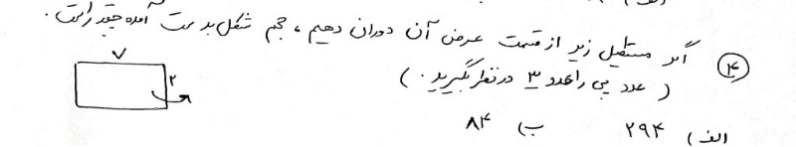 ۴) اگر مستطیل زیر از قسمت عرض آن دوران دهیم ، حجم شکل بدست آمده چقدر است .
( عدد پی را عدد ۳ در نظر بگیرید . )
۷
۲
الف) ۲۹۴ ب) ۸۴